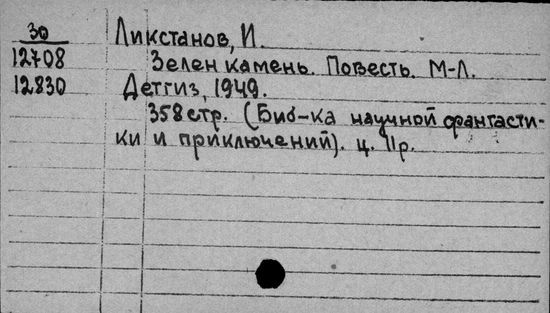 30
Ликстанов, И.
12708
Зелен камень. Повесть. М-Л.
12830
Детгиз, 1949.
358 стр. (Биб-ка научной фантасти-
ки и приключений). ц. 11р.